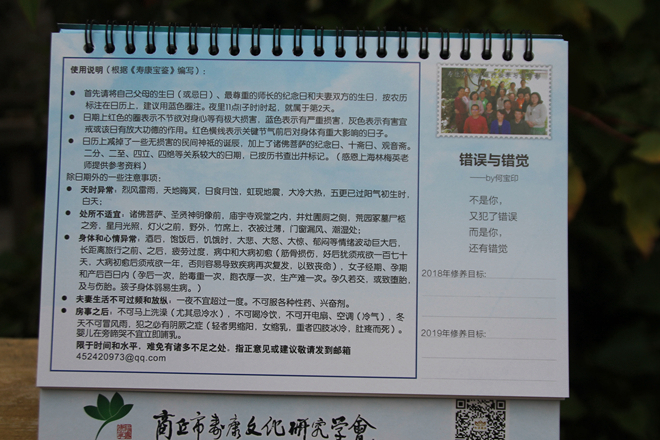 使用说明(根据《寿康宝鉴》编写):
● 首先请将自己父母的生日(或忌日)、最尊重的师长的纪念日和夫妻双方的生日，按农历
标注在日历上，建议用蓝色圈注。夜里11点(子时)起，就属于第2天。
● 日期上红色的圈表示不节欲对身心等有极大损害，蓝色表示有严重损害，灰色表示有宜
戒或该日有放大功德的作用。红色横线表示关键节气前后对身体有重大影响的日子。
● 日历上减掉了一些无损害的民间神祇的诞辰，加上了诸佛菩萨的纪念日、十斋日、观音斋。
二分、二至、四立、四绝等关系较大的日期，已按历书查出并标记。(感恩上海林梅英老
师提供参考资料)
除日期外的一些注意事项:
● 天时异常: 烈风雷雨，天地晦冥，日食月蚀，虹现地震，大冷大热、五更已过阳气初生时，
白天;
● 处所不适宜: 诸佛菩萨、圣贤神明像前，庙宇寺观堂之内，井灶圊厕之侧，荒园冢墓尸柩
之旁，星月光照，灯火之前，野外，竹席上，衣被过薄，门窗漏风、潮湿处;
● 身体和心情异常: 酒后，饱饭后，饥饿时，大悲、大怒、大惊、郁闷等情绪波动巨大后，
长距离旅行之前、之后，疲劳过度，病中和大病初愈(筋骨损伤，好后犹须戒欲一百七十
天，大病初愈后须戒欲一年，否则容易导致疾病再次复发，以致丧命)，女子经期、孕期
和产后百日内(孕后一次，胎毒重一次，胞衣厚一次，生产难一次。孕久若交，或致堕胎，
及与伤胎。孩子身体弱易生病。)
● 夫妻生活不可过频和放纵: 一夜不宜超过一度。不可服各种性药、兴奋剂。
● 房事之后: 不可马上洗澡(尤其忌冷水)，不可喝冷饮，不可开电扇、空调(冷气)，冬
天不可冒风雨，犯之必有阴厥之症(轻者男缩阳，女缩乳，重者四肢冰冷，肚疼而死)。
婴儿在旁啼哭不宜立即哺乳。
限于时间和水平，难免有诸多不足之处，指正意见或建议敬请发到邮箱
452420973@qq.com
错误与错觉
——by何宝印
不是你，
又犯了错误
而是你，
还有错觉
2018年修养目标:
2019年修养目标:
商丘市寿康文化研究学会